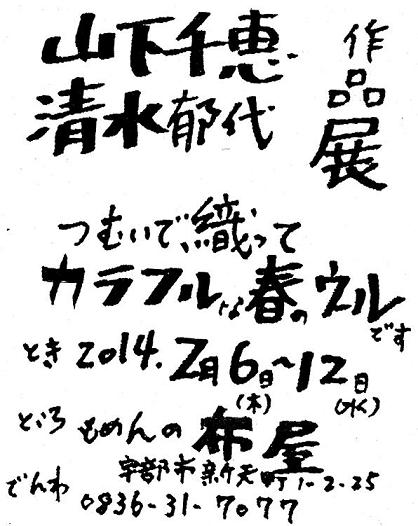 山下千恵
清水郁代
作品展
つむいで、織って
カラフルな春のウールです
とき 2014. 2月6日~12日
(木) (水)
ところ もめんの布屋
宇部市新天町1-2-25
でんわ 0836-31-7077